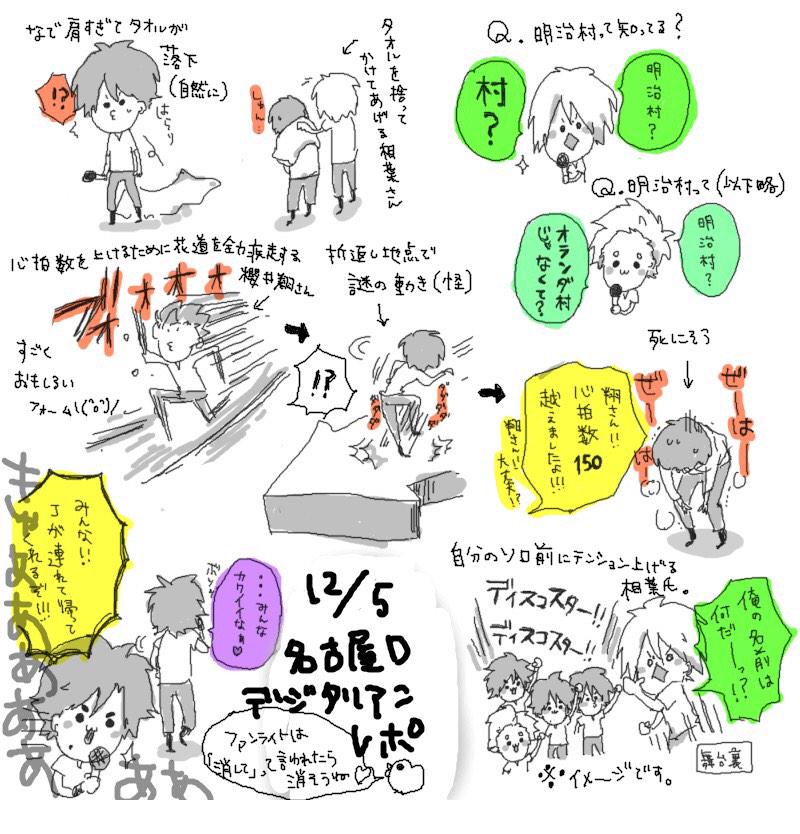 なで肩すぎてタオルが
落下
(自然に)
!?
はらり
タオルを捨って
かけてあげる相葉さん
しゅん…
Q.明治村って知ってる?
明治村?
村?
Q.明治村って(以下略)
明治村?
オランダ村
じゃなくて?
心拍数を上げるために花道を全力疾走する
櫻井翔さん
ブオオオオ
すごく
おもしろい
フォーム!(°o°)/
折返し地点で
謎の動き(怪)
!?
ダダダダ
ダダダダ
死にそう
翔さん!!
心拍数
150
越えましたよ!!!
翔さん!!
大丈夫!?
ぜーはー
ぜーはー
みんな!!
Jが連れて帰って
くれるぞ!!!
きゃあああああああ
ああ
…みんな
カワイイなぁ♡
ボソッ
12/5
名古屋D
デジタリアン
レポ
ファンライトは
「消して」って言われたら
消そうね
自分のソロ前にテンション上げる
相葉氏。
ディスコスター!!
ディスコスター!!
俺の名前は
何だーっ!?
舞台裏
※イメージです。